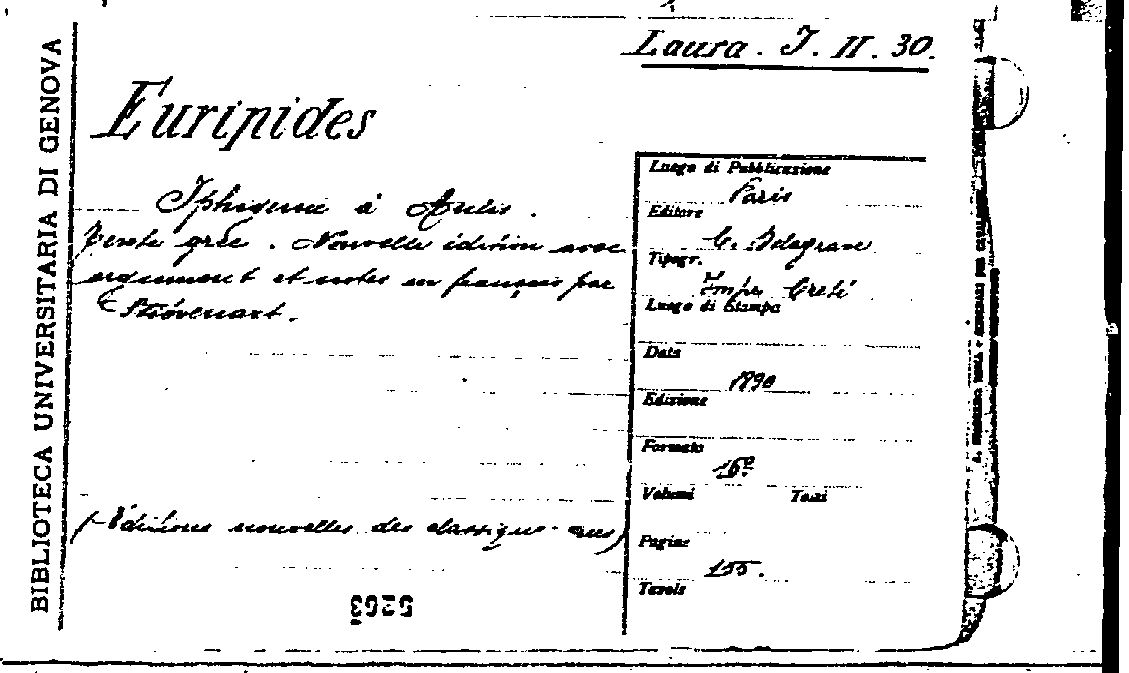 BIBLIOTECA UNIVERSITARIA DI GENOVA
Laura. I. II. 30.
Euripides
Iphigénie à Aulis.
texte grec. Nouvelle édition avec
argument et notes en français par
Stiévenart.
(Éditions nouvelles des classiques
5263
Luogo di Pubblicazione
Paris
Editore
C. Delagrave
Tipogr.
Impr. Crété
Luogo di Stampa
Data
1890
Edizione
Formato
16º
Volumi Tomi
Pagine
155.
Tavole